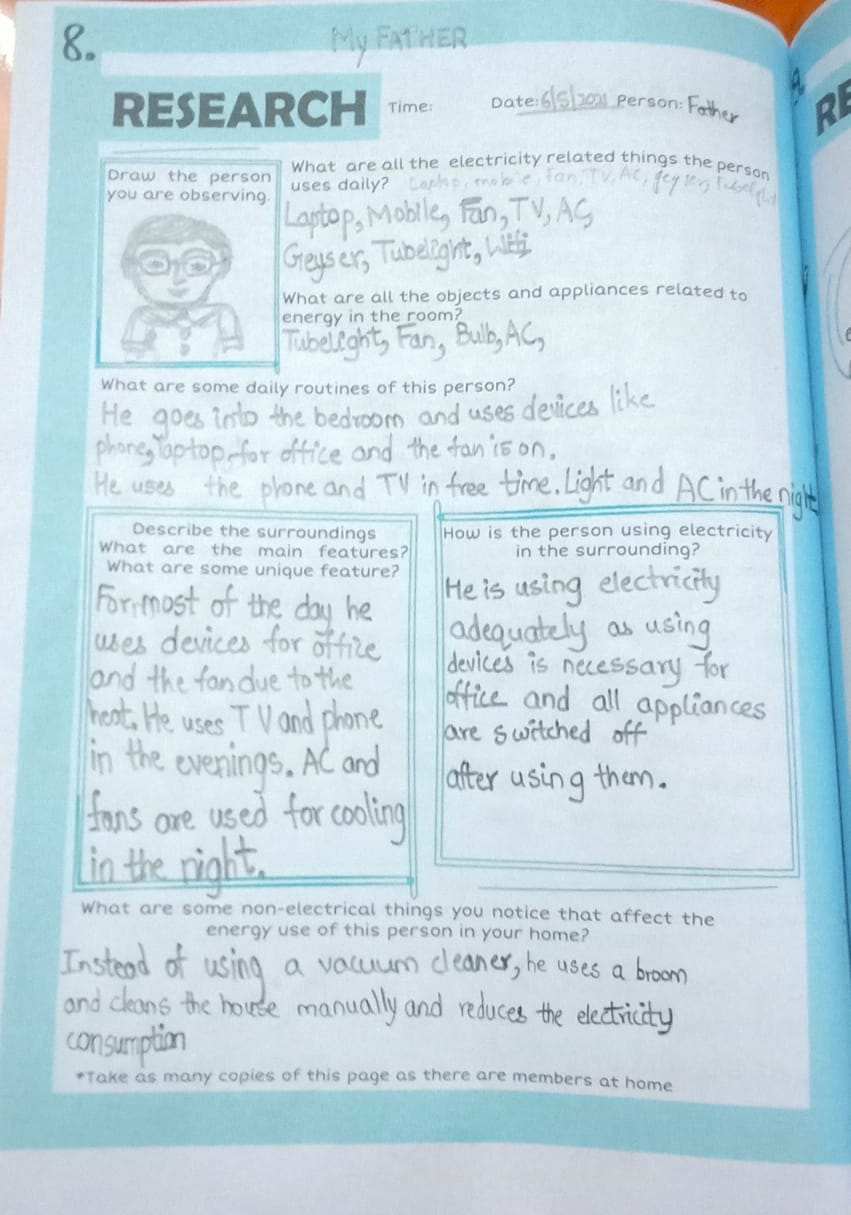 8.
My FATHER
RESEARCH Time: Date: 6/5/2021 Person: Father
Draw the person
you are observing.
What are all the electricity related things the person
uses daily? Laptop, mobile, Fan, TV, AC, geyser, Tubelight
Laptop, Mobile, Fan, TV, AC,
Geyser, Tubelight, Wifi
What are all the objects and appliances related to
energy in the room?
Tubelight, Fan, Bulb, AC,
What are some daily routines of this person?
He goes into the bedroom and uses devices like
phone, laptop, for office and the fan is on.
He uses the phone and TV in free time. Light and AC in the night
Describe the surroundings
What are the main features?
What are some unique feature?
For, most of the day he
uses devices for office
and the fan due to the
heat. He uses TV and phone
in the evenings. AC and
fans are used for cooling
in the night.
How is the person using electricity
in the surrounding?
He is using electricity
adequately as using
devices is necessary for
office and all appliances
are switched off
after using them.
What are some non-electrical things you notice that affect the
energy use of this person in your home?
Instead of using a vacuum cleaner, he uses a broom
and cleans the house manually and reduces the electricity
consumption
*Take as many copies of this page as there are members at home
RE